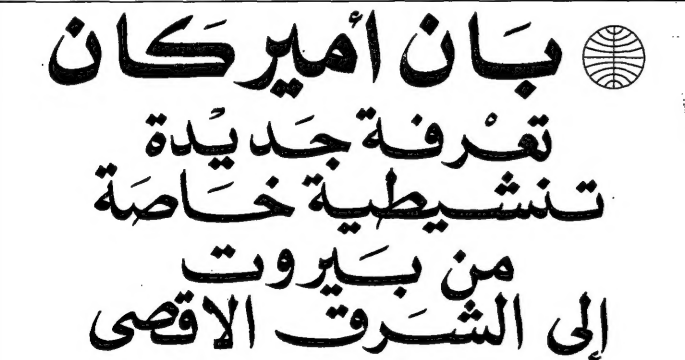 بَان أميركَان
تعْرفة جَديْدة
تنشيطية خَاصَة
من بَيروت
إلى الشَرق الاقصى